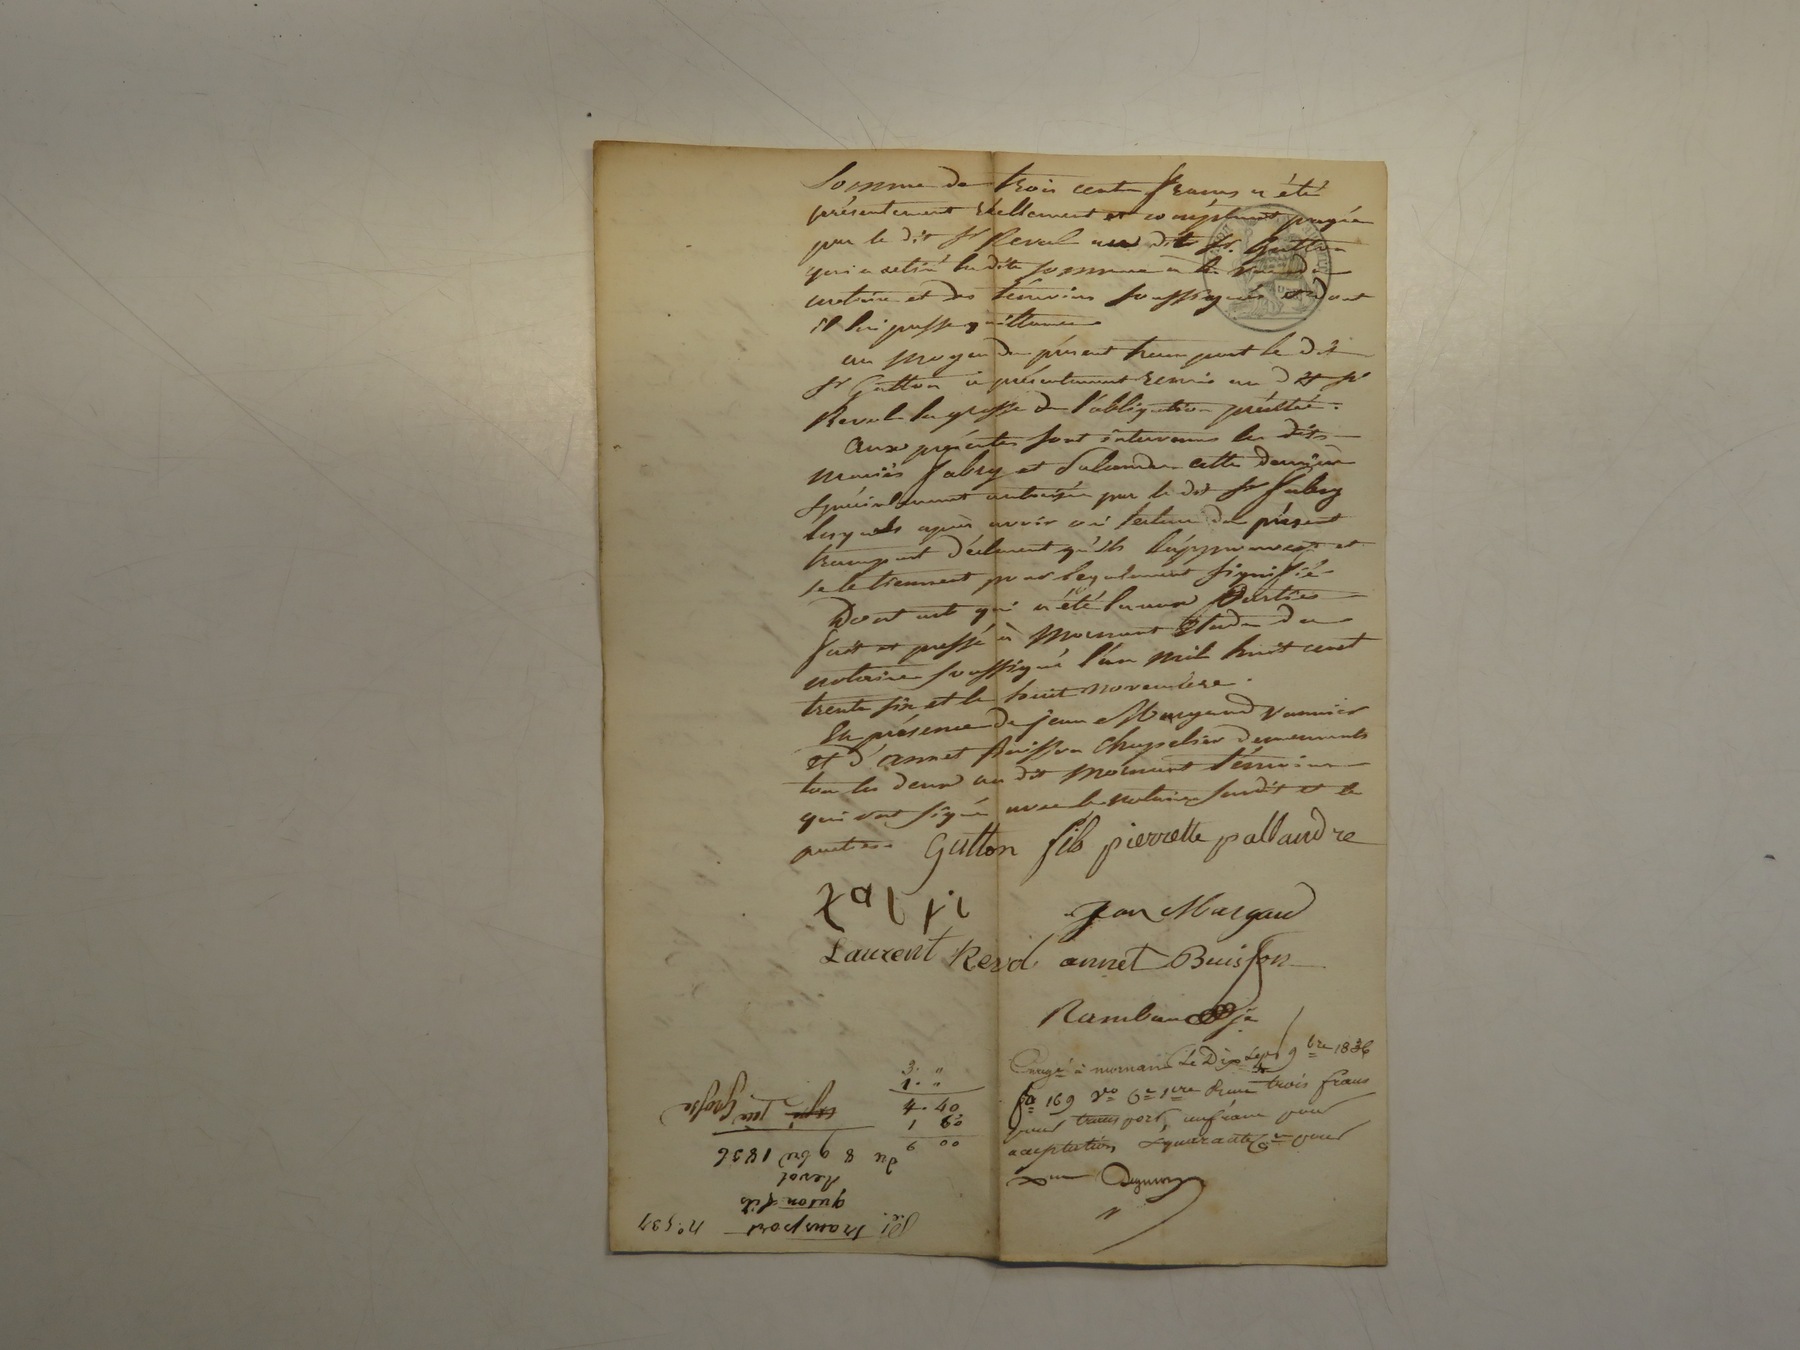 Somme de trois cents francs a été
présentement réellement et comptant payée
par le dit sr Reval au dit sr. Gutton
qui a retiré la dite somme à la vue du
notaire et des témoins soussignés et dont
il lui passe quittance
au moyen du présent transport le dit
sr Gutton a présentement remis au dit sr
Reval la grosse de l'obligation précitée.
Aux présentes sont intervenus les dits
mariés Fabry et Palandre cette dernière
spécialement autorisée par le dit sr Fabry
lesquels après avoir oui lecture du présent
transport déclarent qu'ils l'approuvent et
se le tiennent pour légalement signifié
Dont acte qui a été lu aux Parties
fait et passé à Mornant Etude du
notaire soussigné l'an mil huit cent
trente six et le huit novembre.
En présence de jean Margand vannier
et d'annet Buisson chapelier demeurants
tous les deux au dit Mornant témoins
qui ont signé avec le notaire susdit et les
parties.
Gutton fils pierrette pallandre
jean Margand
Laurent Revol annet Buisson
Rambaud
Enregé à mornant Le Dix sept 9bre 1836
fo 169 Vo Ce 1ere Reçu trois francs
pour transport, un franc pour
acceptation & quarante Ce pour
Xme
3. "
1. "
4. 40
1 60
6 00
transport no 537
guton fils
Revol
du 8 9bre 1836
1ere Grosse